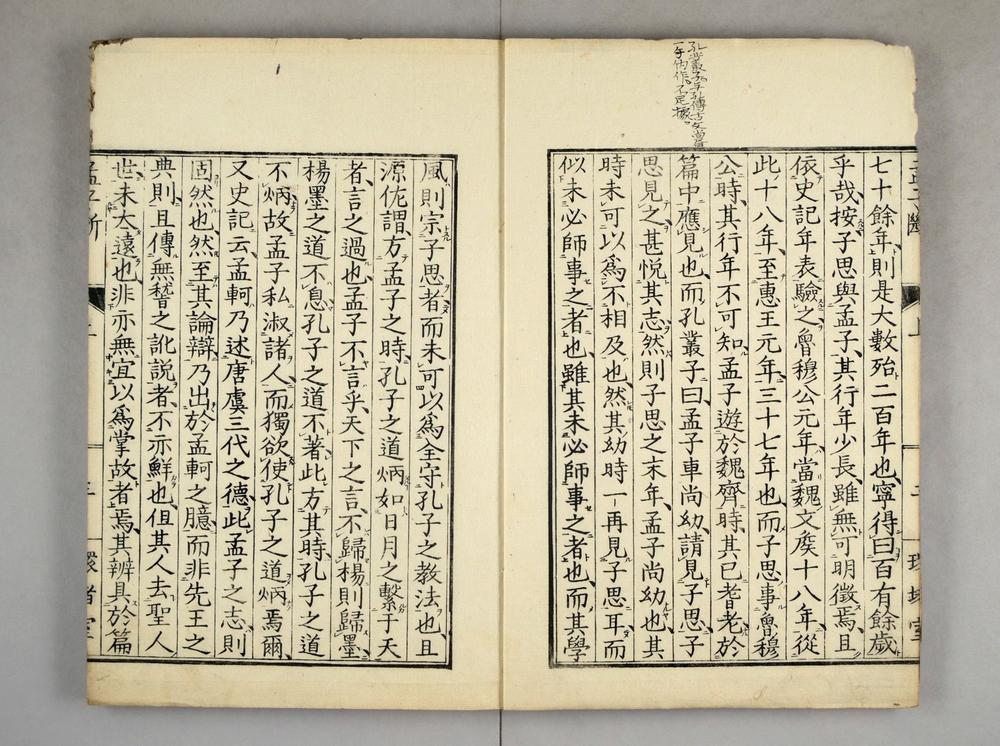 孔叢子
一手偽作不足據
七十餘年則是大數殆二百年也寧得曰百有餘歲
乎哉按子思與孟子其行年少長雖無可明徵焉且
依史記年表驗之魯穆公元年當魏文矦十八年從
此十八年至惠王元年三十七年也而子思事魯穆
公時其行年不可知孟子遊於魏齊時其已耆老於
篇中應見也而孔叢子曰孟子車尚幼請見子思子
思見之甚悦其志然則子思之末年孟子尚幼也其
時未可以爲不相及也然其幼時一再見子思耳而
似未必師事之者也雖其未必師事之者也而其學
風則宗子思者而未可以爲全守孔子之教法也且
源佐謂方孟子之時孔子之道炳如日月之繫于天
者言之過也孟子不言乎天下之言不歸楊則歸墨
楊墨之道不息孔子之道不著此方其時孔子之道
不炳故孟子私淑諸人而獨欲使孔子之道炳焉爾
又史記云孟軻乃述唐虞三代之德此孟子之志則
固然也然至其論辯乃出於孟軻之臆而非先王之
典則且傳無稽之訛説者不亦鮮也但其人去聖人
世未太遠也非亦無宜以爲掌故者焉其辨具於篇